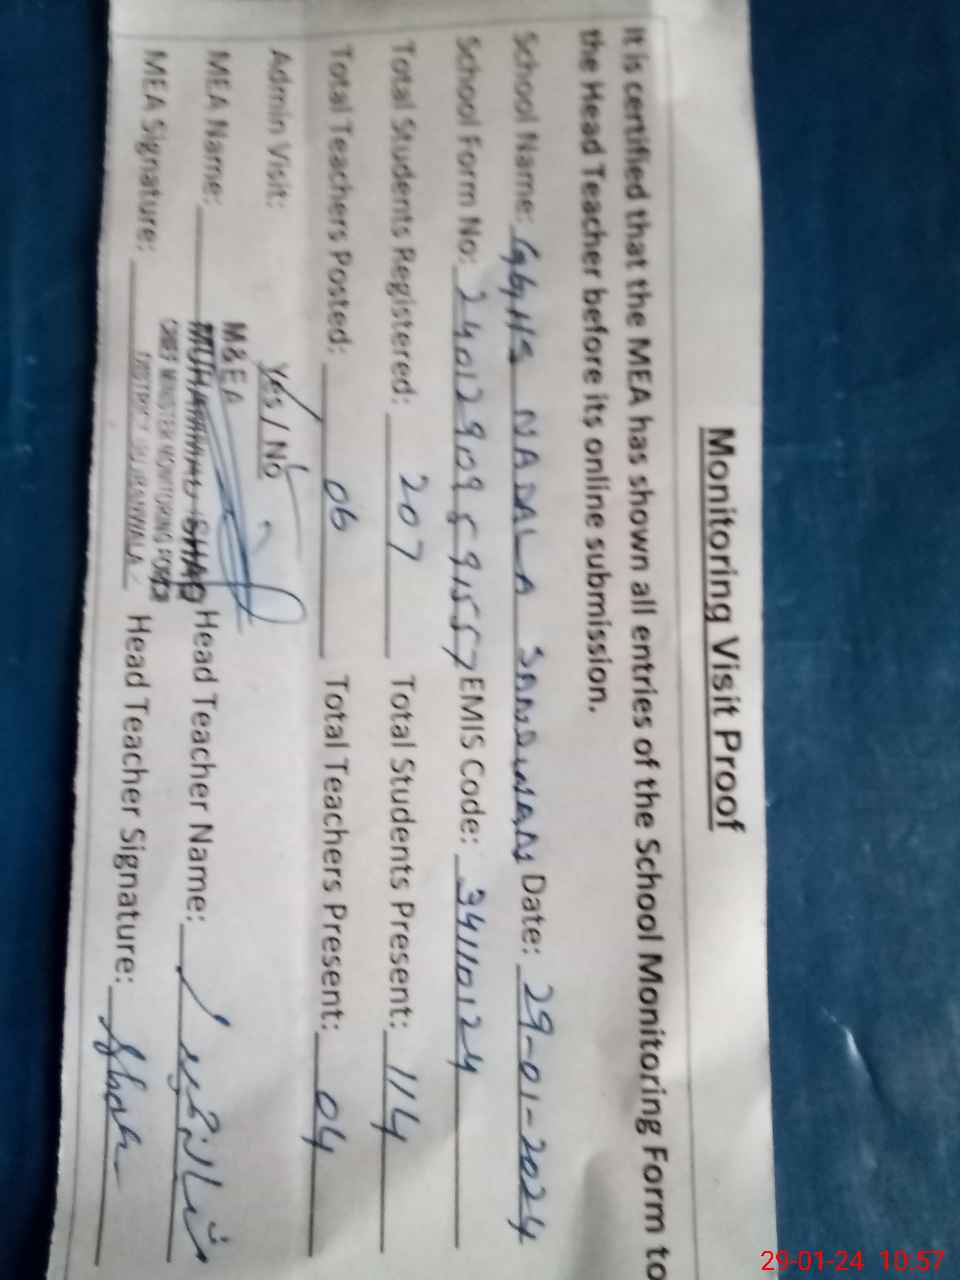 Monitoring Visit Proof
It is certified that the MEA has shown all entries of the School Monitoring Form to
the Head Teacher before its online submission.
School Name: GGHS NADALA SANDHWAN Date: 29-01-2024
School Form No: EMIS Code: 34110124
Total Students Registered: 207 Total Students Present: 114
Total Teachers Posted: 06 Total Teachers Present: 04
Admin Visit: Yes / No
M&EA
MEA Name: MUHAMMAD Head Teacher Name:
CHIEF MINISTER MONITORING FORCE
MEA Signature: DISTRICT GUJRANWALA Head Teacher Signature:
29-01-24 10:57